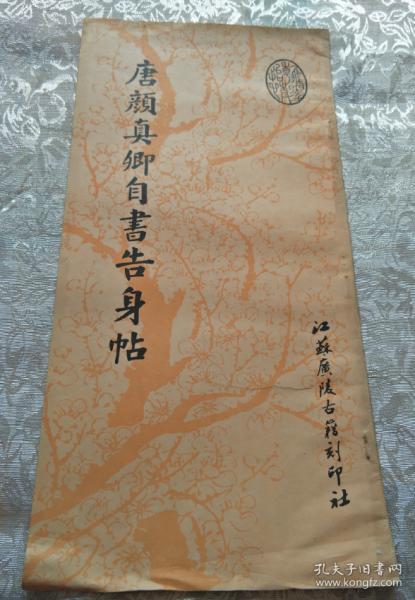 唐顔真卿自書告身帖
江蘇廣陵古籍刻印社
孔夫子旧书网
www.kongfz.com